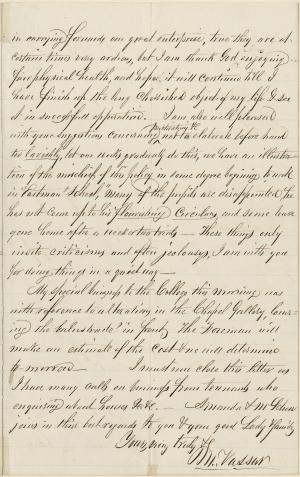 in carrying forward our great enterprise, true they are at
certain times very arduous, but I am thank God enjoying
fair physical health, and hope it will continue till I
have finish up the long cherished object of my life & see
it in successful operation. I am also well pleased
with your suggestion concerning publishing &c not to elaborate before hand
too lavishly, let our works gradually do this, we have an illustra-
tion of the mischief of this policy in some degree
in "Eastman" School, "many of the pupils are disappointed" he
has not come up to his flourishing Circulars, and some leave
gone home after a week or two trials — These things only
invite criticisms and often jealousys, I am with you
for doing things in a quiet way —
My special business to the College this morning was
with reference to alterations in the Chapel Gallery, lower-
ing the balustrade in front, The Foreman will
make an estimate of the cost & we will determine
to-morrow — I must now close this letter as
I have many calls on business from tennants who
enquiring about houses &c &c — Amanda & M
joins in their best regards to you & your good Lady & family
Yours very truly
M. Vassar